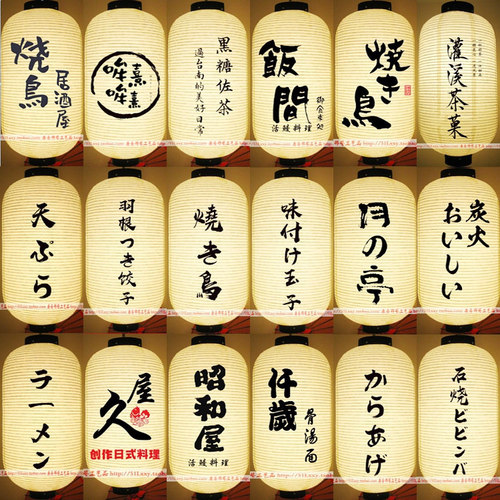 烧鳥
居酒屋
哞熹
哞熹
黑糖佐茶
過台南的美好日常
飯間
御食事処
活鰻料理
焼き鳥
灌溪茶菓
天ぷら
羽根つき餃子
燒き鳥
味付け玉子
月の亭
炭火
おいしい
ラーメン
久屋
创作日式料理
昭和屋
活鰻料理
仟歲
骨湯面
からあげ
石焼ビビンバ